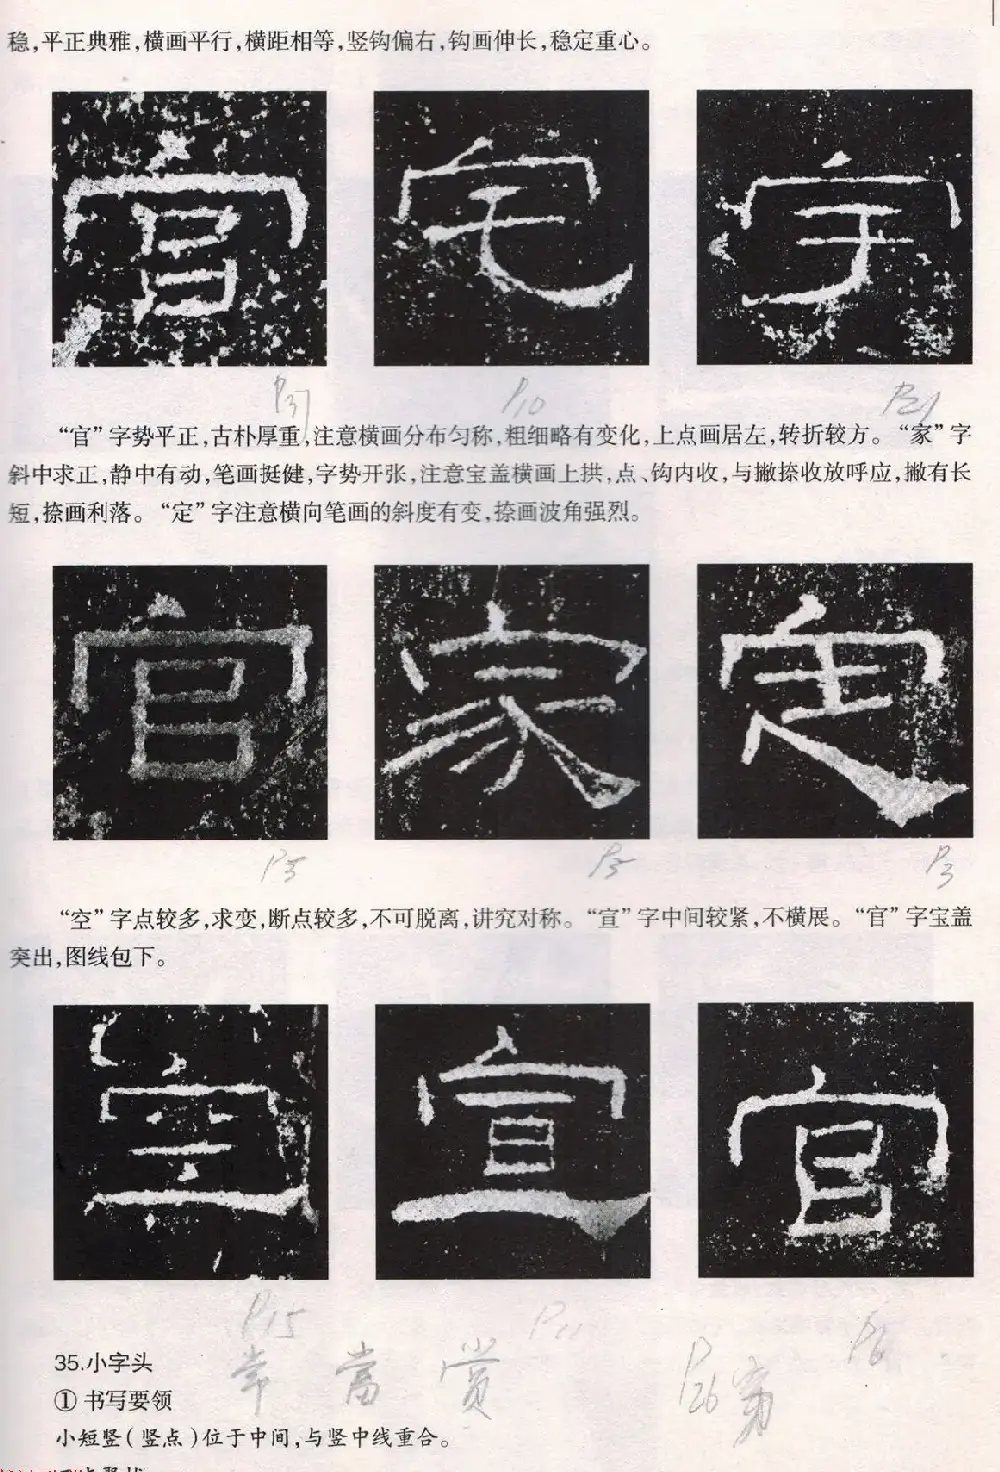 稳,平正典雅,横画平行,横距相等,竖钩偏右,钩画伸长,稳定重心。
官 宅 宇
P31 P10 P21
“官”字势平正,古朴厚重,注意横画分布匀称,粗细略有变化,上点画居左,转折较方。“家”字
斜中求正,静中有动,笔画挺健,字势开张,注意宝盖横画上拱,点、钩内收,与撇捺收放呼应,撇有长
短,捺画利落。“定”字注意横向笔画的斜度有变,捺画波角强烈。
官 家 定
P3
“空”字点较多,求变,断点较多,不可脱离,讲究对称。“宣”字中间较紧,不横展。“官”字宝盖
突出,图线包下。
空 宣 官
P15 P11 P6
35.小字头
常 當 赏 P26
① 书写要领
小短竖(竖点)位于中间,与竖中线重合。